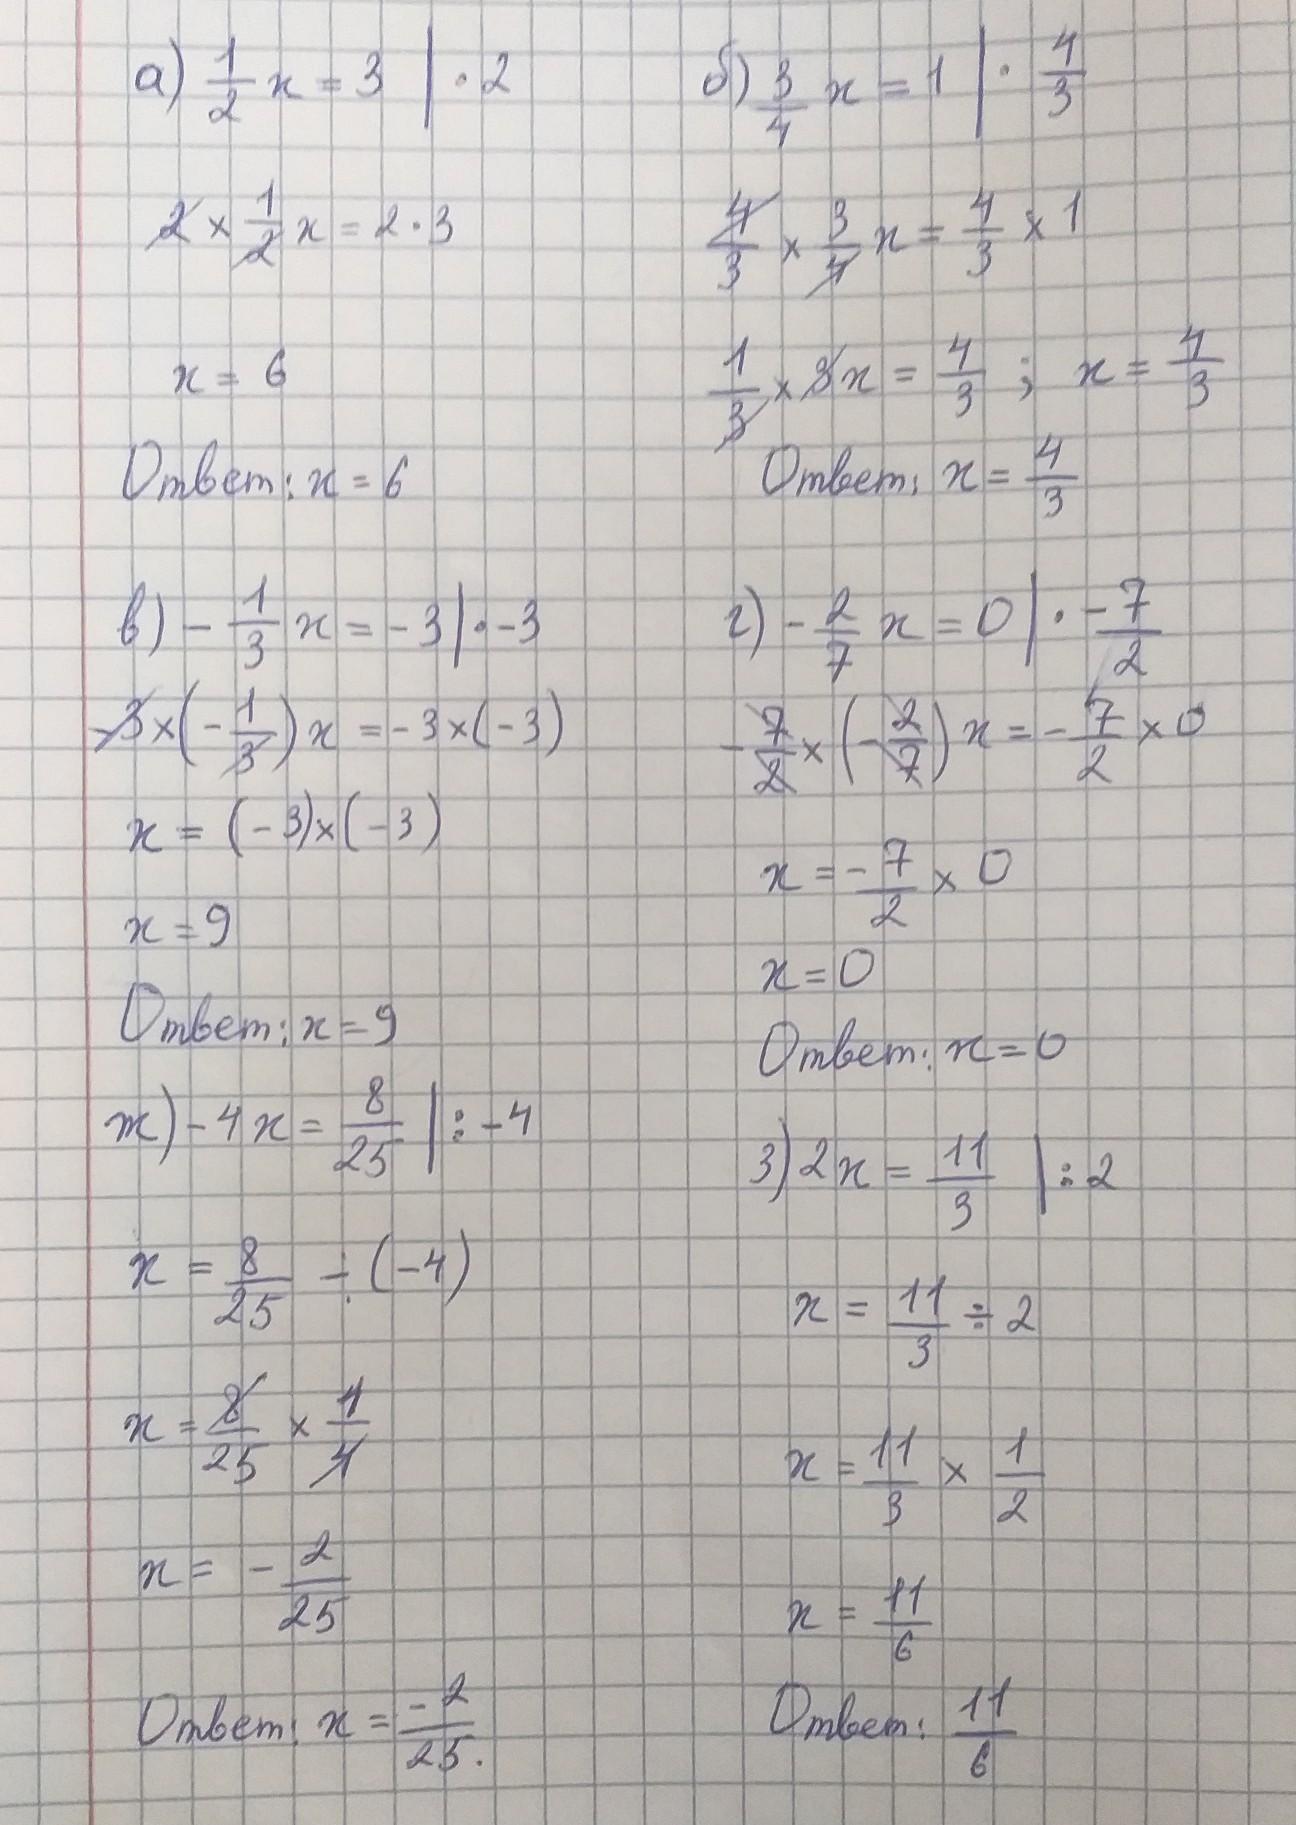 а) 1/2 x = 3 | · 2
2 × 1/2 x = 2 · 3
x = 6
Ответ: x = 6
б) 3/4 x = 1 | · 4/3
4/3 × 3/4 x = 4/3 × 1
1/3 × 3x = 4/3 ; x = 4/3
Ответ: x = 4/3
в) - 1/3 x = - 3 | · -3
-3 × (- 1/3) x = -3 × (-3)
x = (-3) × (-3)
x = 9
Ответ: x = 9
г) - 2/7 x = 0 | · -7/2
- 7/2 × (- 2/7) x = - 7/2 × 0
x = - 7/2 × 0
x = 0
Ответ: x = 0
ж) -4x = 8/25 | : -4
x = 8/25 ÷ (-4)
x = 8/25 × 1/4
x = - 2/25
Ответ: x = -2/25.
з) 2x = 11/3 | : 2
x = 11/3 ÷ 2
x = 11/3 × 1/2
x = 11/6
Ответ: 11/6